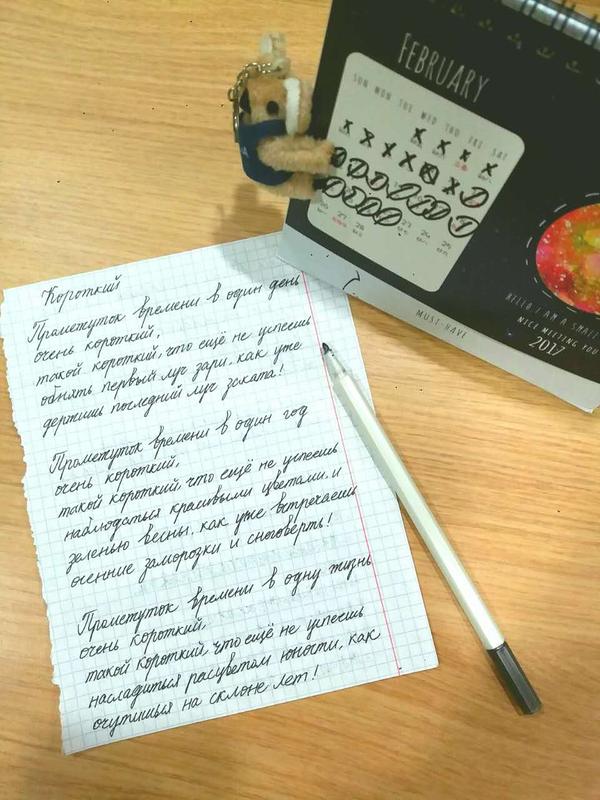 FEBRUARY
SUN MON TUE WED THU FRI SAT
27 28 23 24 25
MUST-HAVE
I AM A SMALL
NICE MEETING YOU
2017
Короткий
Промежуток времени в один день
очень короткий,
такой короткий, что ещё не успеешь
обнять первый луч зари, как уже
держишь последний луч заката!
Промежуток времени в один год
очень короткий,
такой короткий, что ещё не успеешь
наблюдаться красивыми цветами, и
зеленью весны, как уже встречаешь
осенние заморозки и снеговерть!
Промежуток времени в одну жизнь
очень короткий,
такой короткий, что ещё не успеешь
насладиться расцветом юности, как
очутишься на склоне лет!